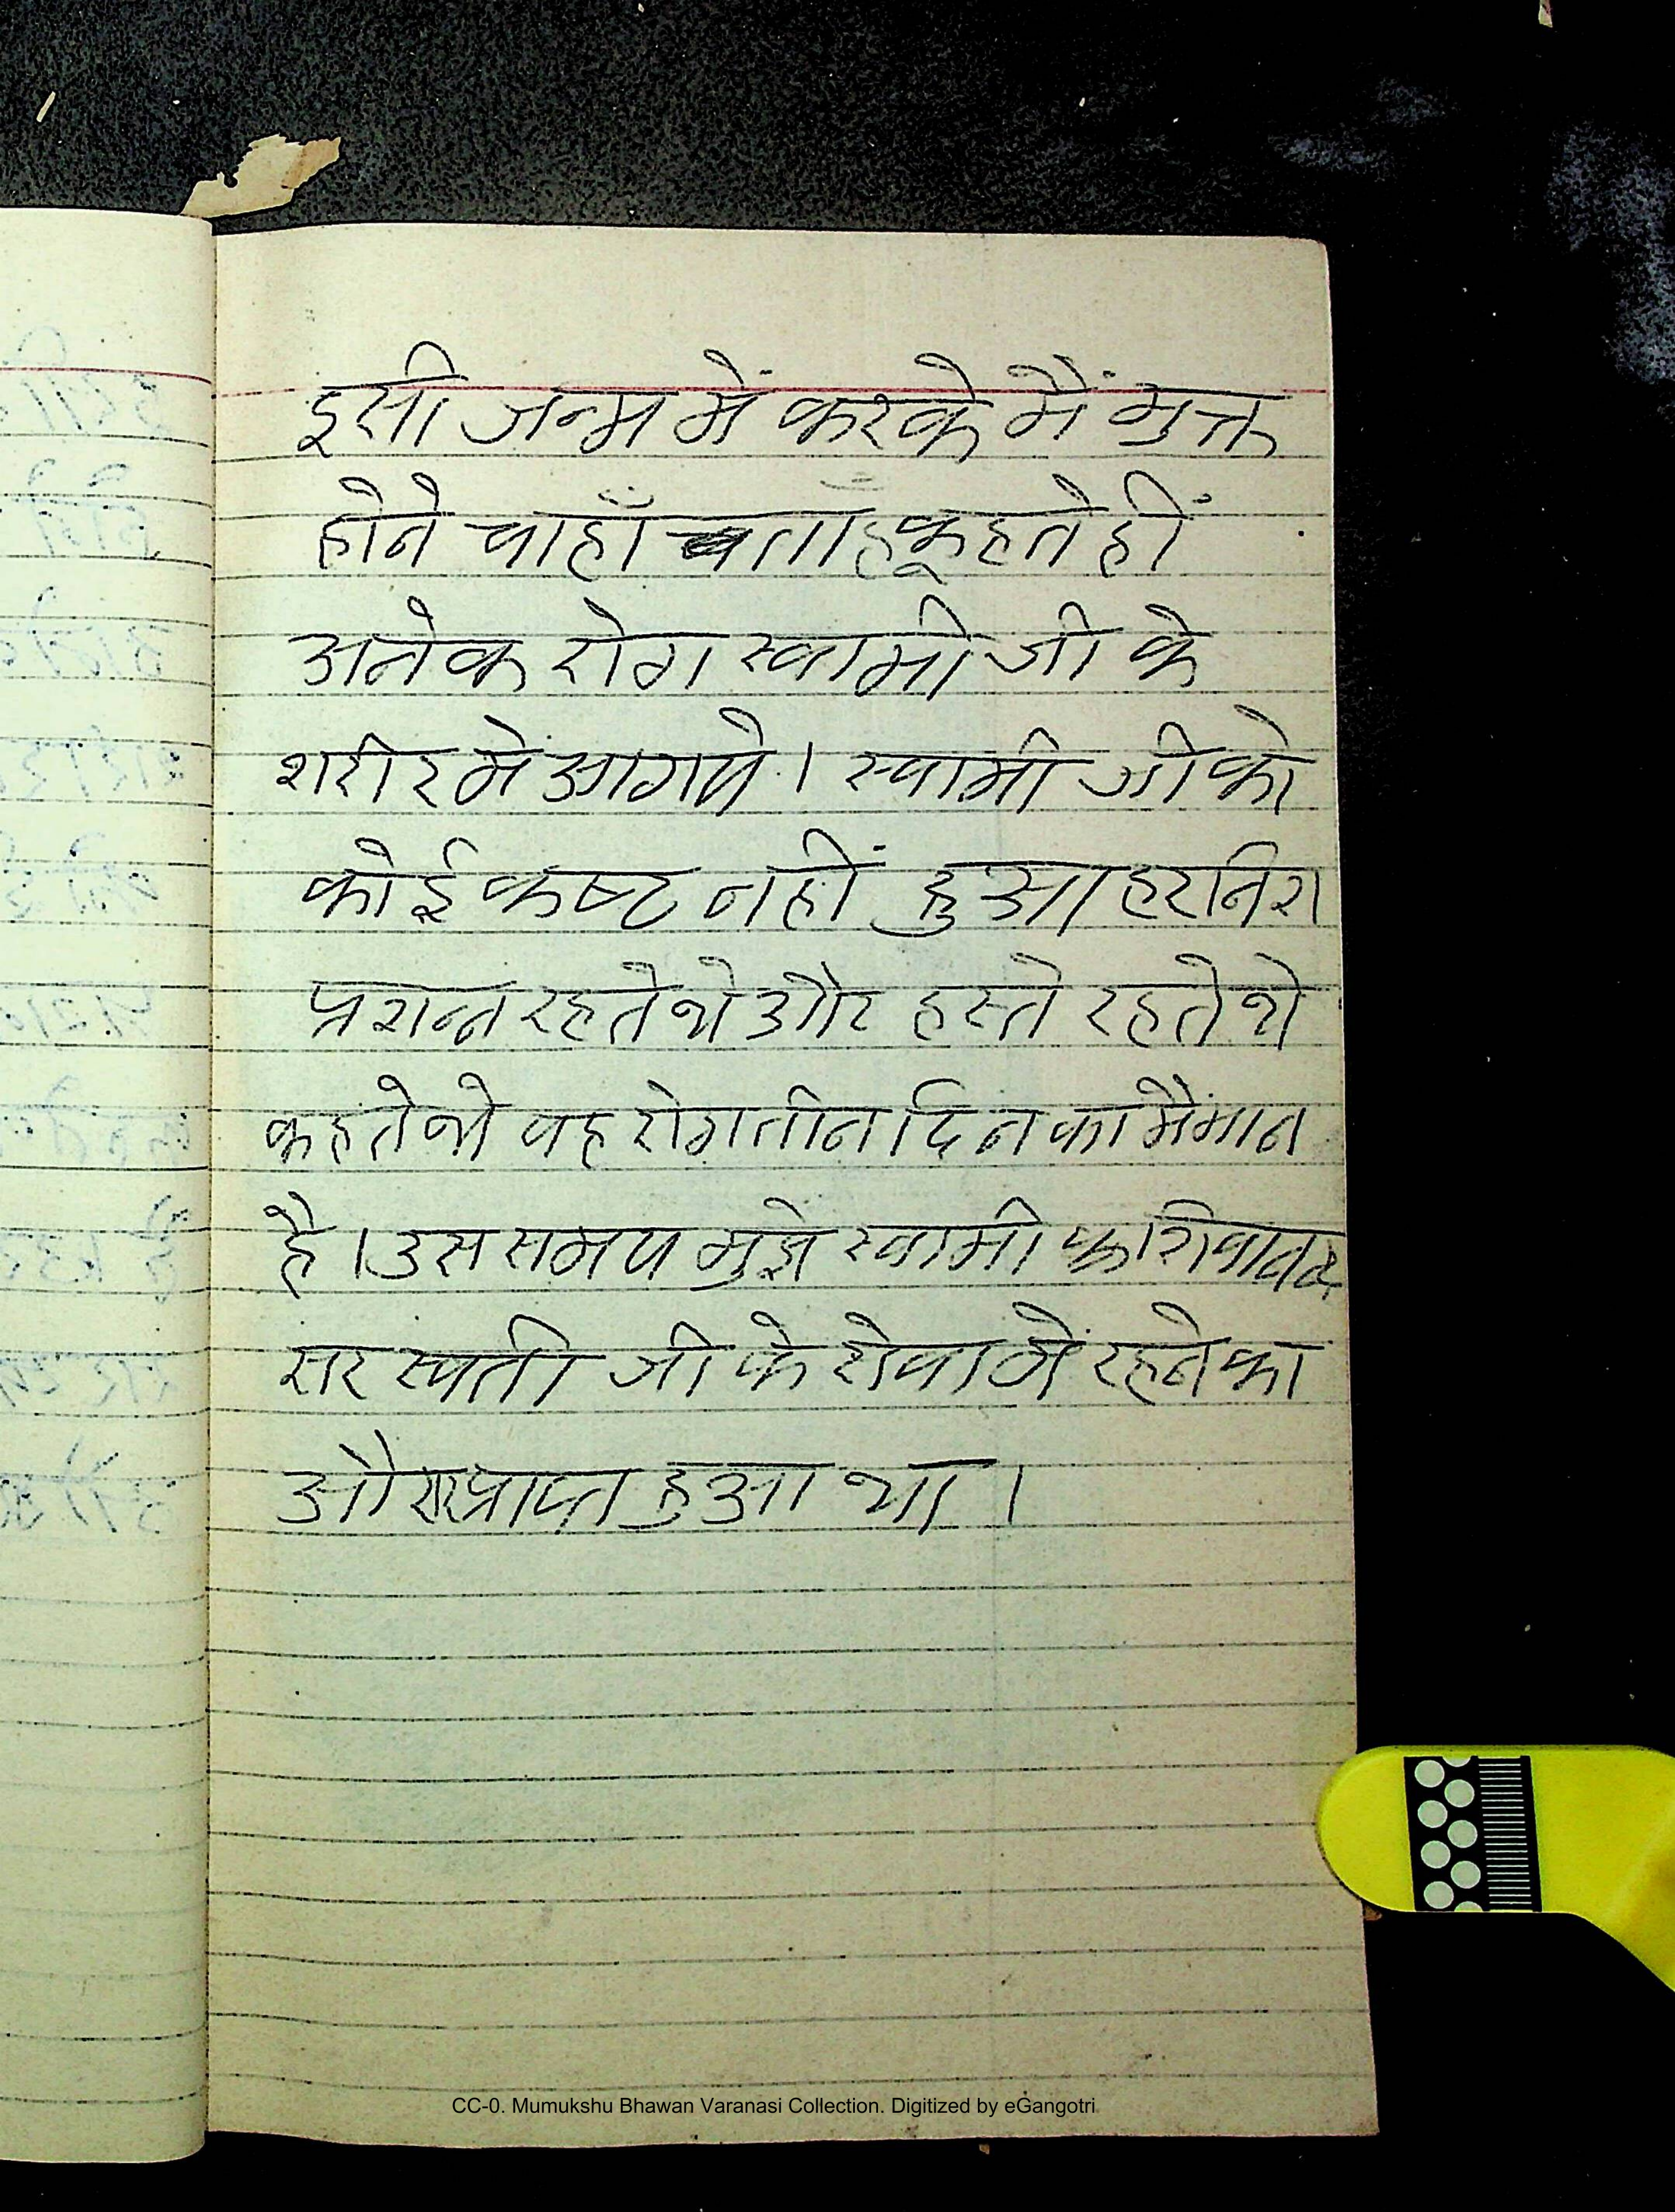 इसी जन्म में करके मैं मुक्त
होने चाहाँ ता हूँ कहते हीं
अनेक रोग स्वामी जी के
शरीर में आगये । स्वामी जी को
कोई कष्ट नहीं हुआ हरनिश
प्रशन्न रहते थे और हस्ते रहते थे
कहते थे वह रोग तीन दिन का मैमान
है । उस समय मुझे स्वामी काशिवानन्द
सरस्वती जी के सेवा में रहने का
प्राप्त हुआ था ।
CC-0. Mumukshu Bhawan Varanasi Collection. Digitized by eGangotri